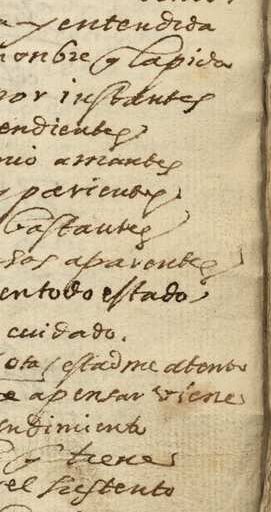 y entendida
honbre q la pida
por instantes
endientes
mio amantes
y parientes
bastantes
sos aparentes
en todo estado
cuidado.
ota / estadme atento
apensar viene
endimiento
y tiene
el sustento